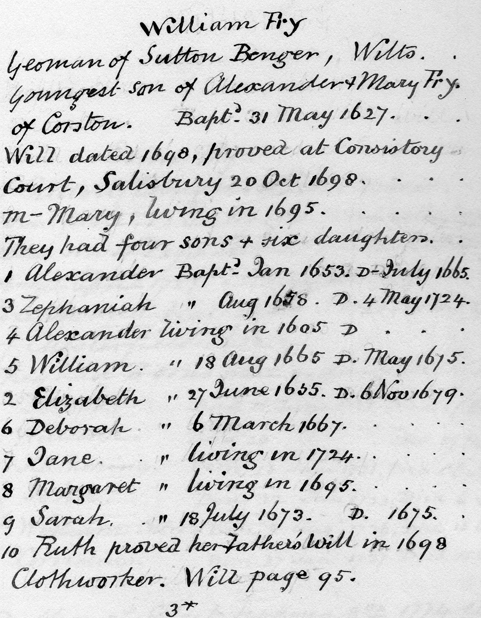 William Fry
Yeoman of Sutton Benger, Wilts. .
Youngest son of Alexander & Mary Fry.
of Corston. Bapt? 31 May 1627. . .
Will dated 1698, proved at Consistory
Court, Salisbury 20 Oct 1698. . . .
m- Mary, living in 1695. . . . .
They had four sons + six daughters. .
1 Alexander Bapt? Jan 1653. D- July 1665.
3 Zephaniah " Aug 1658. D. 4 May 1724.
4 Alexander living in 1605 D . . .
5 William. " 18 Aug 1665 D. May 1675.
2 Elizabeth " 27 June 1655. D. 6 Nov 1679.
6 Deborah " 6 March 1667. . . .
7 Jane. " living in 1724. . . .
8 Margaret " living in 1695. . . .
9 Sarah. " 18 July 1673. D. 1675. .
10 Ruth proved her Father's Will in 1698
Clothworker. Will page 95.
3*